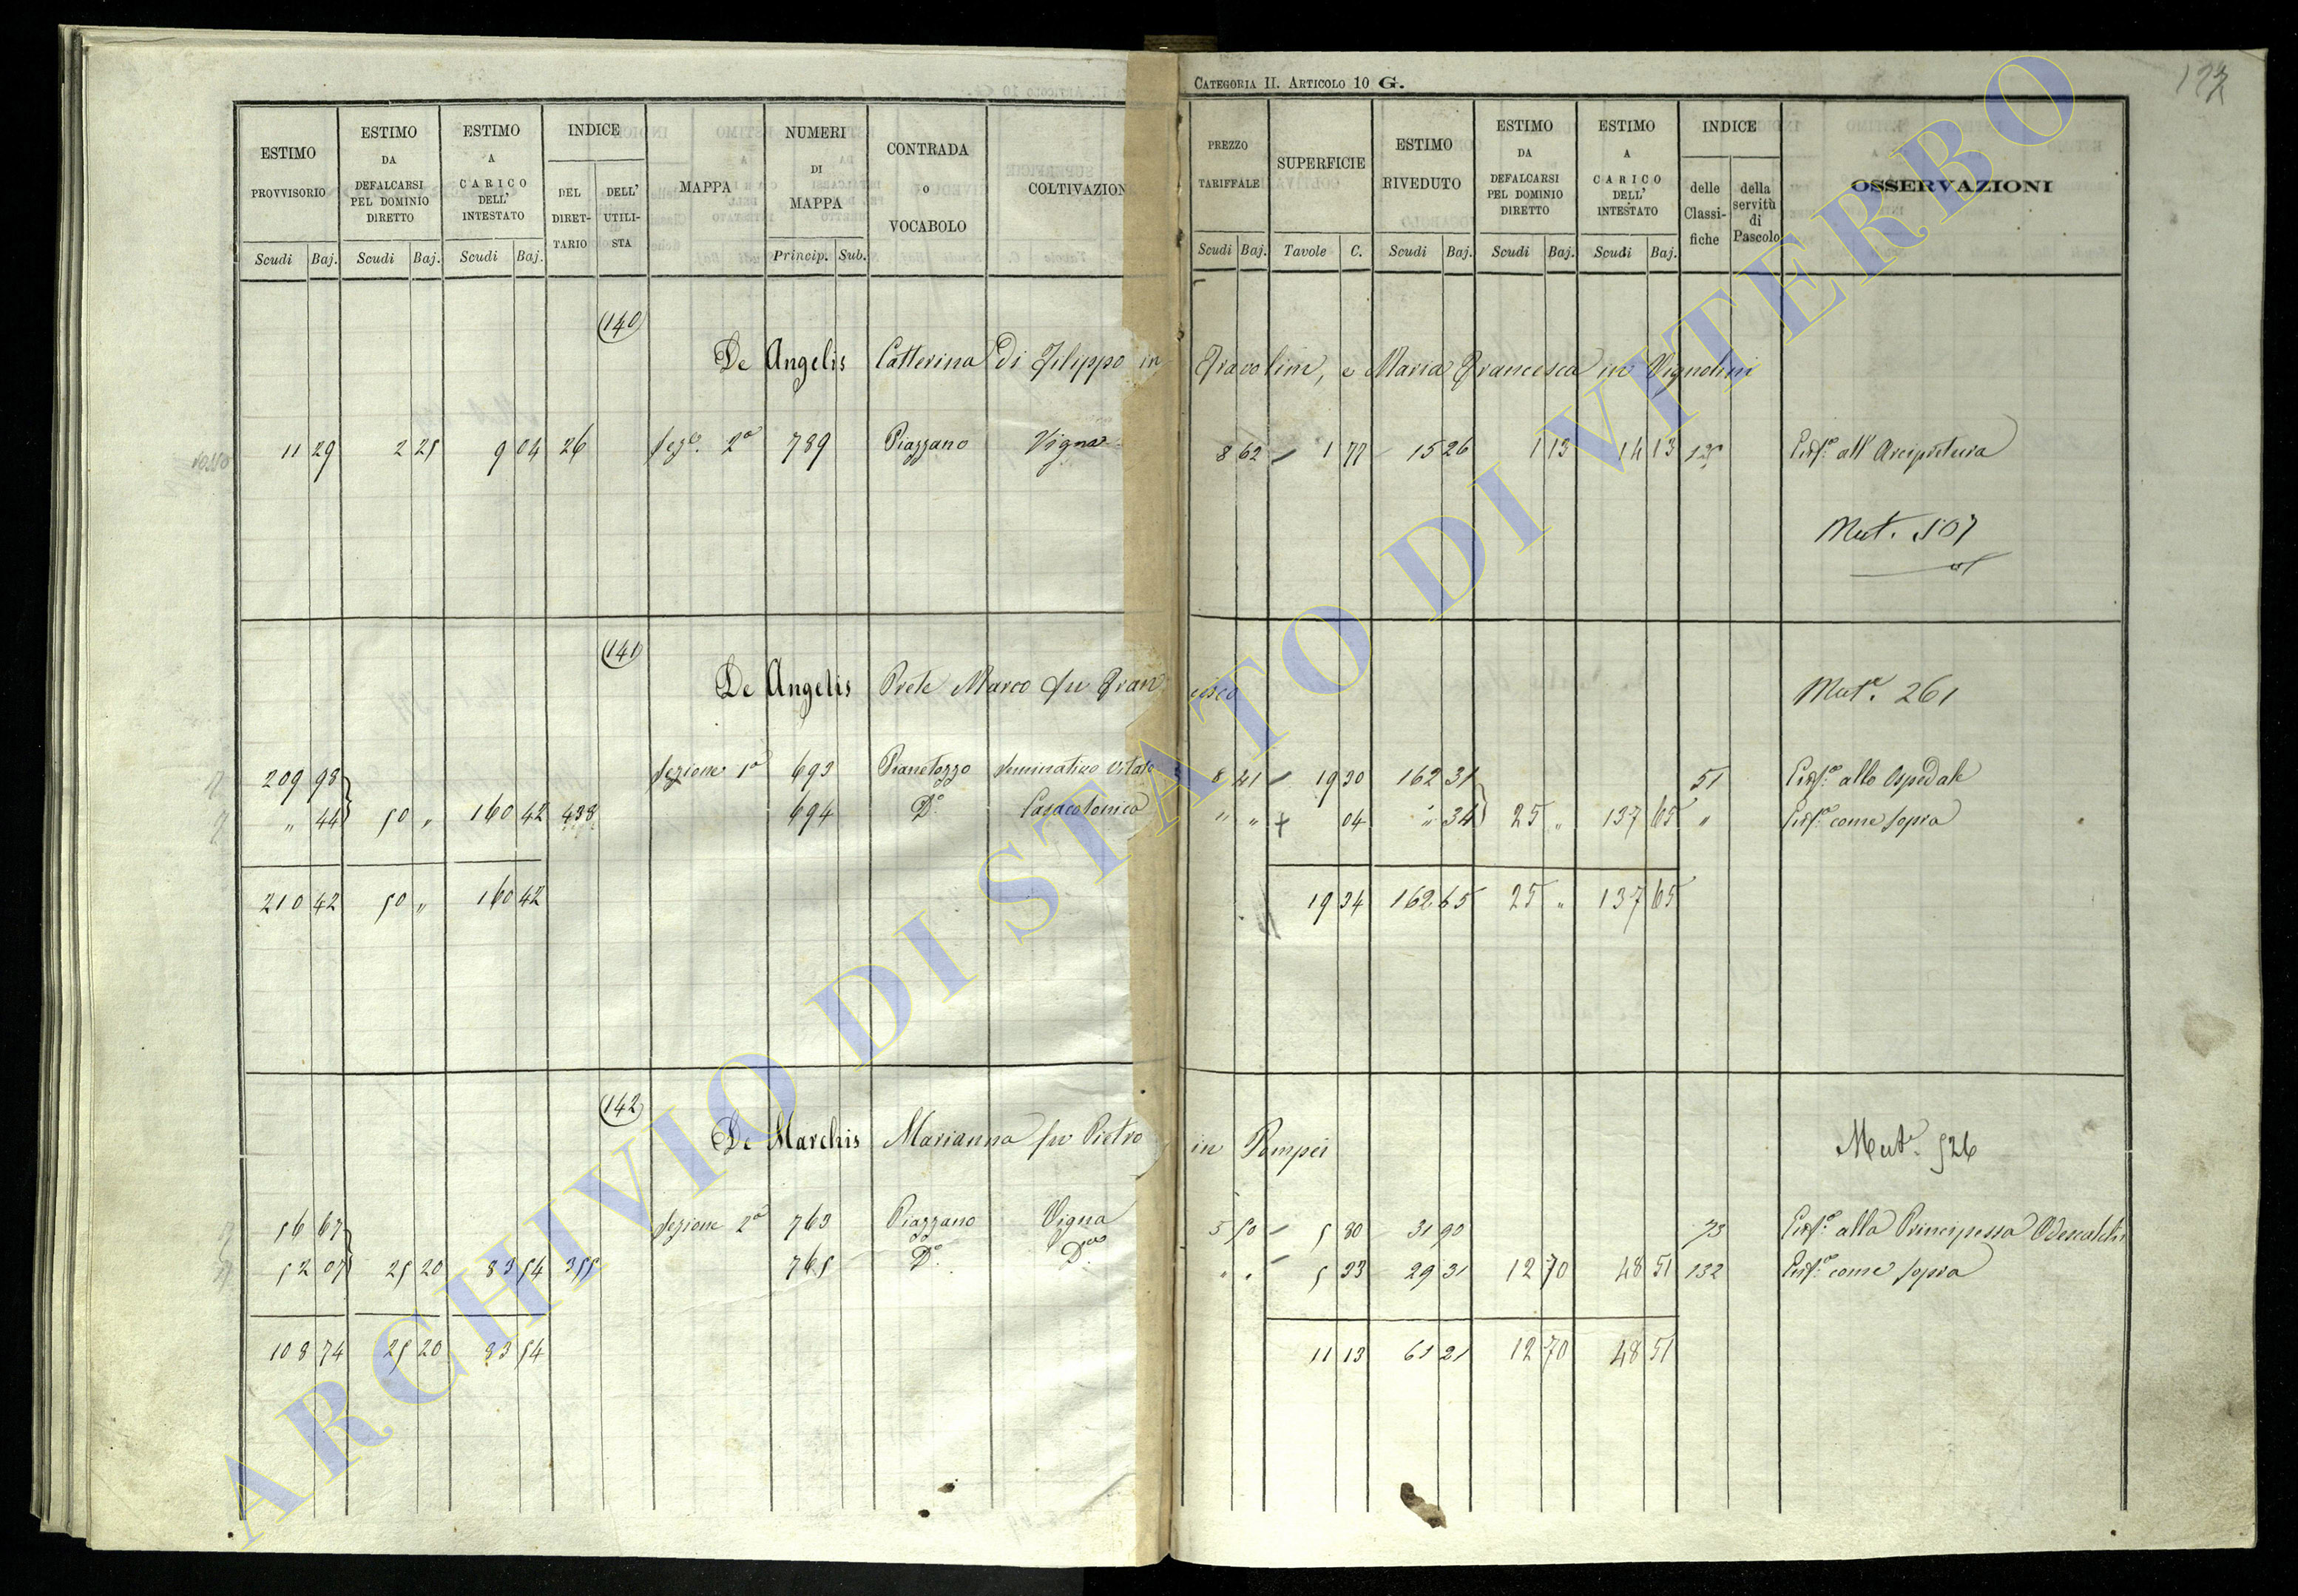 CATEGORIA II. ARTICOLO 10 G.
ESTIMO PROVVISORIO Scudi Baj. | ESTIMO DA DEFALCARSI PEL DOMINIO DIRETTO Scudi Baj. | ESTIMO A CARICO DELL' INTESTATO Scudi Baj. | INDICE DEL DIRETTARIO DELL' UTILISTA | MAPPA | NUMERI DI MAPPA Princip. Sub. | CONTRADA O VOCABOLO | COLTIVAZION | PREZZO TARIFFALE Scudi Baj. | SUPERFICIE Tavole C. | ESTIMO RIVEDUTO Scudi Baj. | ESTIMO DA DEFALCARSI PEL DOMINIO DIRETTO Scudi Baj. | ESTIMO A CARICO DELL' INTESTATO Scudi Baj. | INDICE delle Classifiche della servitù di Pascolo | OSSERVAZIONI
(140)
De Angelis Catterina di Filippo in Fravolini, e Maria Francesca in Vignolini
11 29 2 25 9 04 26 Seze. 2a 789 Piazzano Vigna 8 62 1 77 15 26 1 13 14 13 all' Arcipretura
Mut. 507
(141)
De Angelis Prete Marco fu Francesco Mute. 261
209 98 Sezione 1a 693 Pianetozzo Seminativo Vitato 8 41 19 30 162 31 51 allo Ospedale
" 44 50 " 160 42 438 694 Do. Casa colonica " " 04 " 34 25 " 137 65 " come sopra
210 42 50 " 160 42 19 34 162 65 25 " 137 65
(142)
De Marchis Marianna fu Pietro in Pompei Mute. 526
56 67 Sezione 2a 763 Piazzano Vigna 5 50 5 80 31 90 73 alla Principessa Odescalchi
52 07 25 20 83 54 355 765 Do. Da. " " 5 33 29 31 12 70 48 51 132 come sopra
108 74 25 20 83 54 11 13 61 21 12 70 48 51
ARCHIVIO DI STATO DI VITERBO